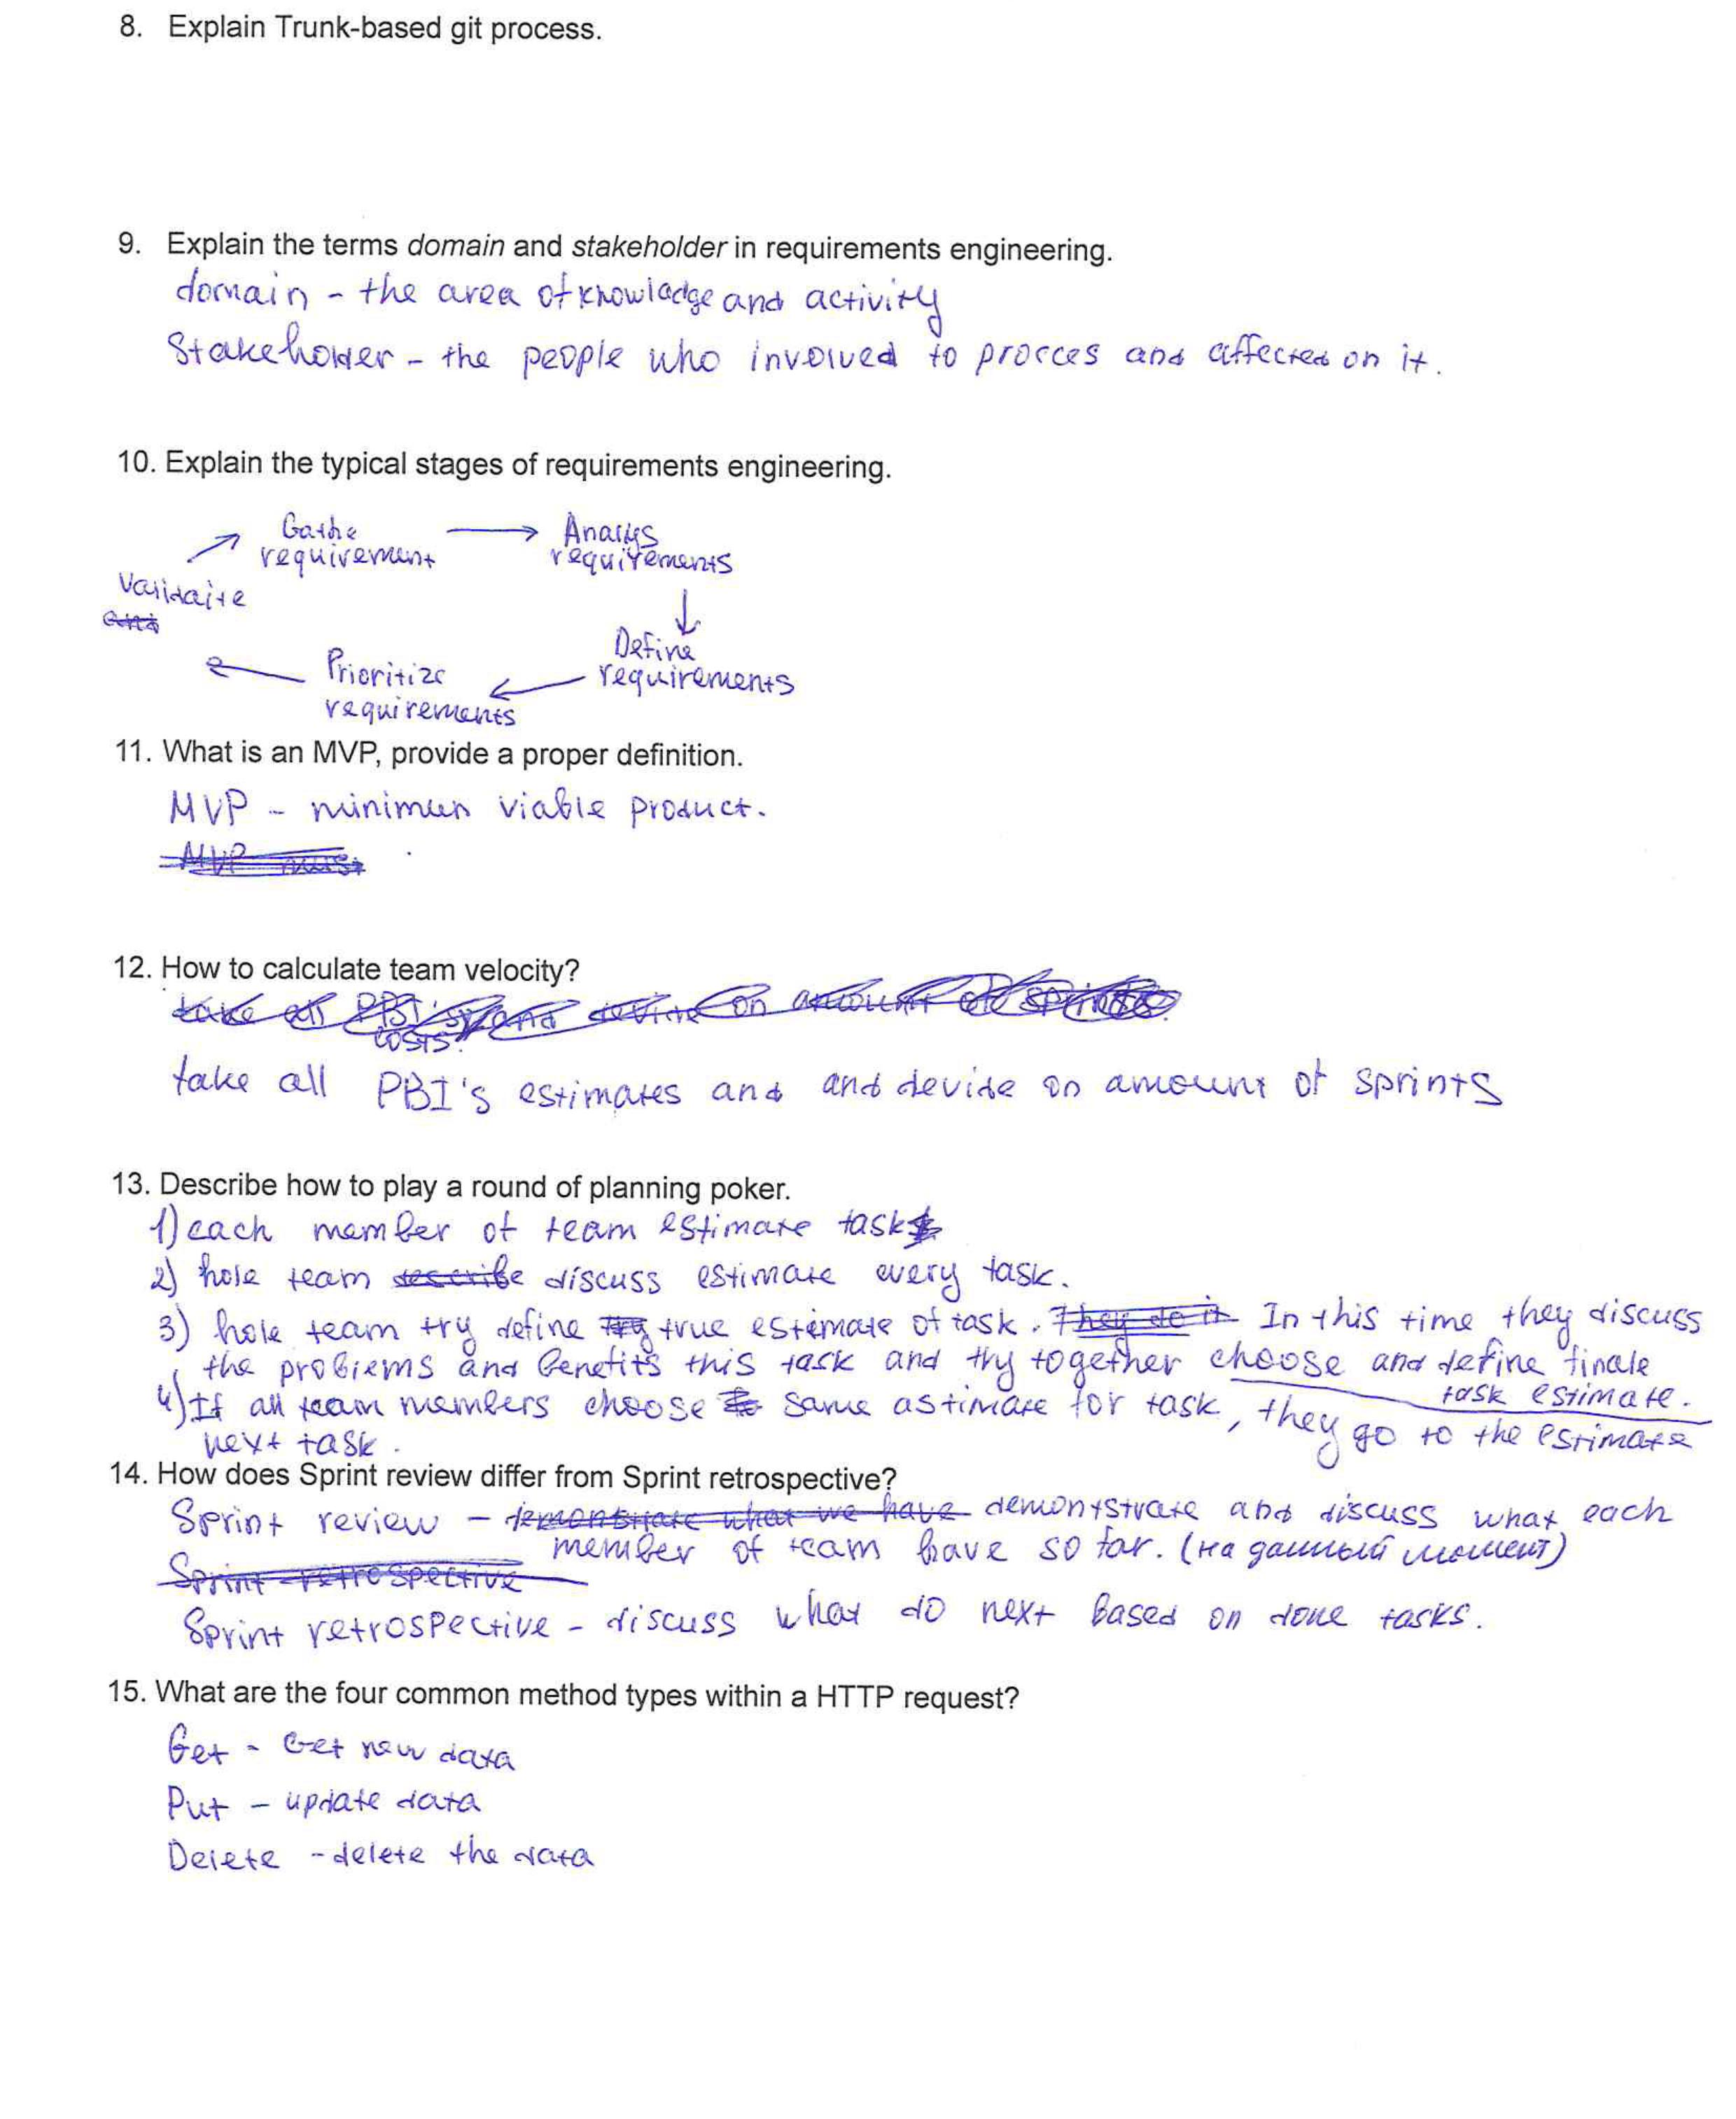 8. Explain Trunk-based git process.
9. Explain the terms domain and stakeholder in requirements engineering.
domain - the area of knowladge and activity
Stakeholder - the people who involved to procces and affected on it.
10. Explain the typical stages of requirements engineering.
Gathe
requirement
Analys
requirements
Validaite
Define
requirements
Prioritize
requirements
11. What is an MVP, provide a proper definition.
MVP - minimun viable product.
MVP must
12. How to calculate team velocity?
take all PBI's and devide on amount of sprints.
costs
take all PBI's estimates and and devide on amount of sprints
13. Describe how to play a round of planning poker.
1) each member of team estimate task
2) hole team describe discuss estimate every task.
3) hole team try define try true estemate of task. They do it In this time they discuss
the problems and benefits this task and try together choose and define finale
task estimate.
4) If all team members choose same astimate for task, they go to the estimate
next task.
14. How does Sprint review differ from Sprint retrospective?
Sprint review - demonstrate what we have demontstrate and discuss what each
member of team have so far. (на данный момент)
Sprint retrospective
Sprint retrospective - discuss what do next based on done tasks.
15. What are the four common method types within a HTTP request?
Get - Get new data
Put - update data
Delete - delete the data